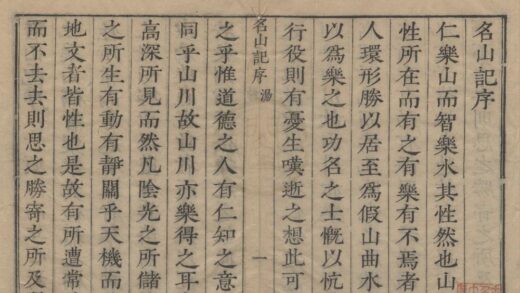 名山記序
仁樂山而智樂水其性然也山
性所在而有之有樂有不焉者
人環形勝以居至爲假山曲水
以爲樂之也功名之士慨以忼
行役則有憂生嘆逝之想此可
名山記序 湯 一
之乎惟道德之人有仁知之意
同乎山川故山川亦樂得之耳
高深所見而然凡陰光之所儲
之所生有動有靜關乎天機而
地文者皆性也是故有所遭常
而不去去則思之勝寄之所及